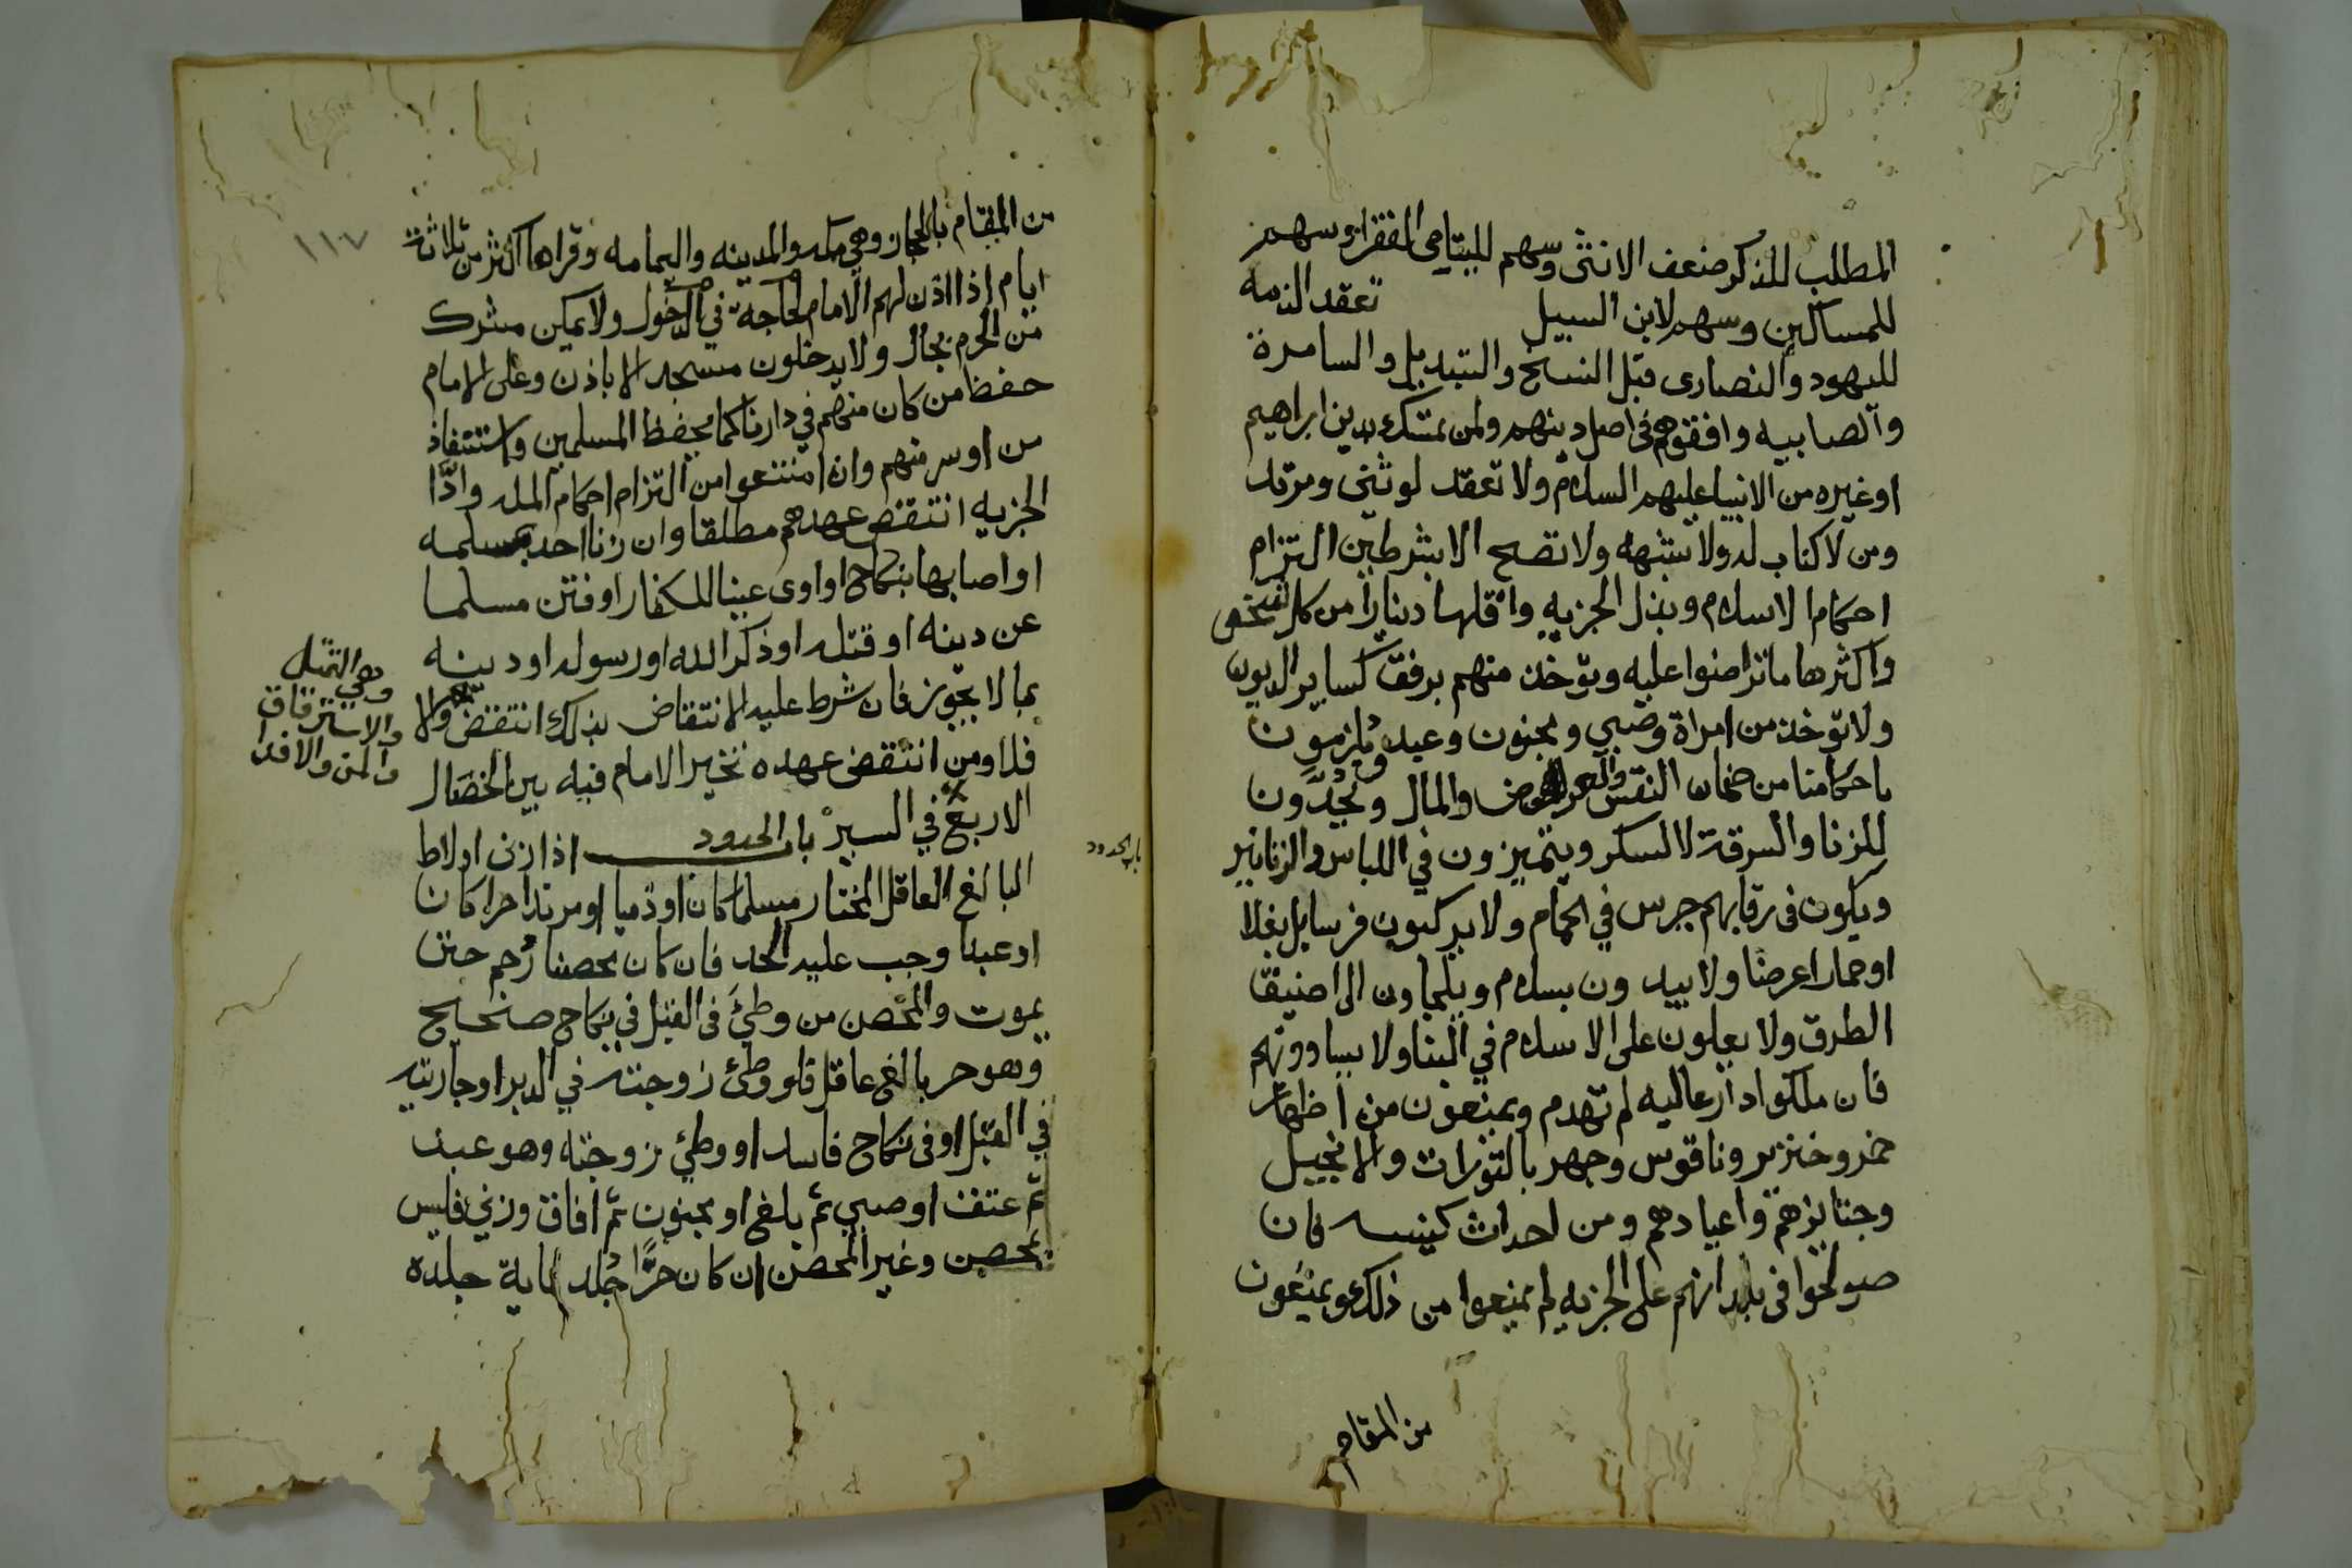 المطلب للذكر ضعف الانثى وسهم لليتامى الفقراء وسهم
للمساكين وسهم لابن السبيل تعقد الذمه
لليهود والنصارى قبل النسخ والتبديل والسامرة
والصابيه وافقوهم فى اصل دينهم ولمن تمسك بدين ابراهيم
اوغيره من الانبيا عليهم السلام ولا تعقد لوثنى ومرتد
ومن لا كتاب له ولا شبهه ولا تصح الا بشرطين التزام
احكام الاسلام وبذل الجزيه واقلها دينارا من كل شخص
واكثرها ما تراضوا عليه وتوخذ منهم برفق كساير الديون
ولا توخذ من امراة وصبي ومجنون وعبد ويلزمون
باحكامنا من ضمان النفس والعرض والمال ويحدون
للزنا والسرقة لا السكر ويتميزون في اللباس والزنانير
ويكون فى رقابهم جرس في الحمام ولا يركبون فرسا بل بغلا
او حمارا عرضا ولا يبدون بسلام ويلجاون الى اضيق
الطرق ولا يعلون على الاسلام في البنا ولا يساوونهم
فان ملكوا دارعاليه لم تهدم ويمنعون من اظهار
خمر وخنزير وناقوس وجهر بالتورات والانجيل
وجنايزهم واعيادهم ومن احداث كنيسه فان
صولحوا فى بلدانهم على الجزيه لم يمنعوا من ذلك ويمنعون
من المقام
١١٧
من المقام بالحجاز وهي مكه والمدينه واليمامه وقراها اكثر من ثلاثة
ايام اذا اذن لهم الامام لحاجة في الدخول ولا يمكن مشرك
من الحرم بحال ولا يدخلون مسجد الا باذن وعلى الامام
حفظ من كان منهم في دارنا كما يحفظ المسلمين واستنقاذ
من اوسر منهم وان امتنعوا من التزام احكام المله واداا
الجزيه انتقض عهدهم مطلقا وان زنا احد بمسلمه
او اصابها بنكاح او اوى عينا للكفار او فتن مسلما
عن دينه او قتله او ذكر الله او رسوله او دينه
بما لا يجوز فان شرط عليه الانتقاض بذلك انتقض والا
فلا ومن انتقض عهده تخير الامام فيه بين الخصال
الاربع في السير باب الحدود اذا زنى او لاط
البالغ العاقل المختار مسلما كان او ذميا او مرتدا حرا كان
او عبدا وجب عليه الحد فان كان محصنا رُجم حتى
يموت والمحصن من وطئ فى القبل في نكاح صحيح
وهو حر بالغ عاقل فلو وطئ زوجته في الدبر او جاريته
في القبل او فى نكاح فاسد او وطئ زوجته وهو عبد
ثم عتق او صبي ثم بلغ او مجنون ثم افاق وزنى فليس
بمحصن وغير المحصن ان كان حرًّا جُلد ماية جلده
وهي القتل
والاسترقاق
والمن والافدا
باب الحدود